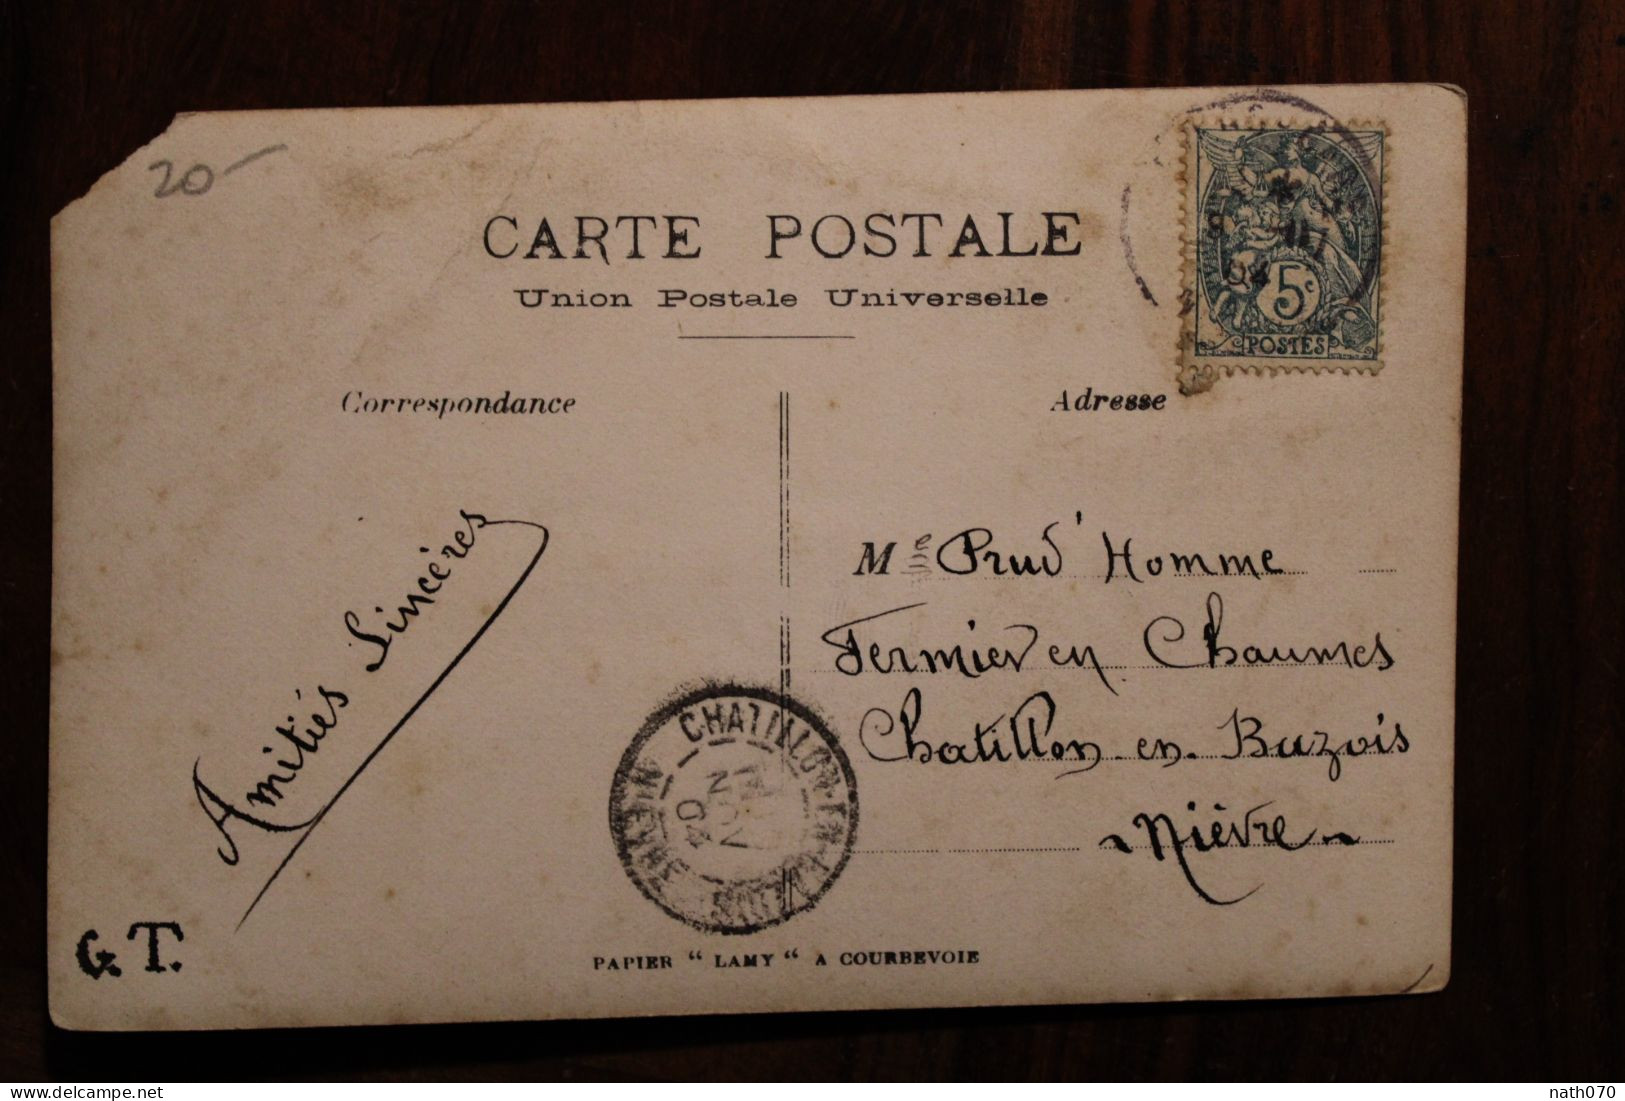 20-
CARTE POSTALE
Union Postale Universelle
Correspondance
Adresse
5c
POSTES
04
Amitiés Sincères
Mme Prud'Homme
Fermier en Chaumes
Chatillon-en-Bazois
~ Nièvre ~
CHATILLON-EN-BAZOIS
NIEVRE
NOV
04
G.T.
PAPIER “ LAMY “ A COURBEVOIE
delcampe.net
nath070